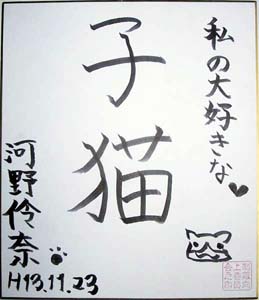 私の大好きな♥
子猫
河野伶奈
H13.11.23